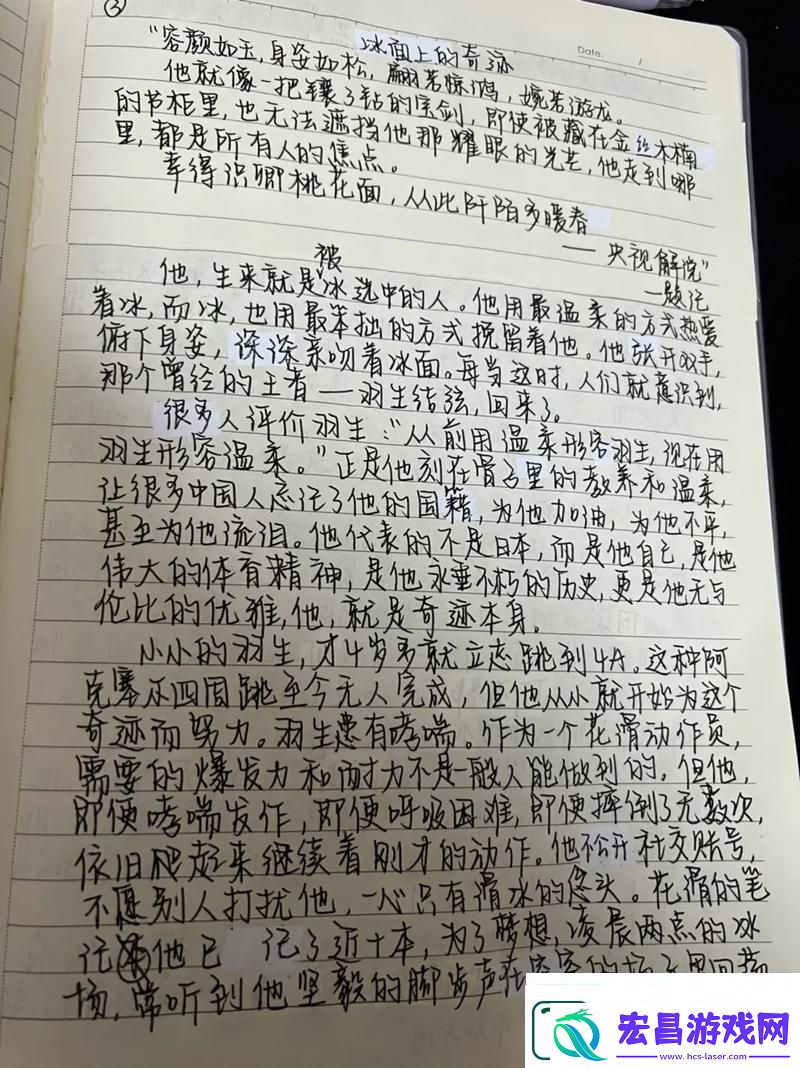 ③
冰面上的奇迹
Date. /
“容颜如玉,身姿如松,翩若惊鸿,婉若游龙。
他就像一把镶了钻的宝剑,即使被藏在金丝木楠
的书柜里,也无法遮挡他那耀眼的光芒,他走到哪
里,都是所有人的焦点。
幸得识卿桃花面,从此阡陌多暖春
— 央视解说”
—题记
被
他,生来就是冰选中的人。他用最温柔的方式热爱
着冰,而冰,也用最笨拙的方式挽留着他。他张开双手,
俯下身姿,深深亲吻着冰面。每当这时,人们就意识到,
那个曾经的王者—羽生结弦,回来了。
很多人评价羽生:“从前用温柔形容羽生,现在用
羽生形容温柔。”正是他刻在骨子里的教养和温柔,
让很多中国人忘记了他的国籍,为他加油,为他不平,
甚至为他流泪。他代表的不是日本,而是他自己,是他
伟大的体育精神,是他永垂不朽的历史,更是他无与
伦比的优雅,他,就是奇迹本身。
小小的羽生,才4岁多就立志跳到4A,这种阿
克塞尔四周跳至今无人完成,但他从小就开始为这个
奇迹而努力。羽生患有哮喘。作为一个花滑动作员,
需要的爆发力和耐力不是一般人能做到的。但他,
即便哮喘发作,即便呼吸困难,即便摔倒了无数次,
依旧爬起来继续着刚才的动作。他不公开社交账号,
不愿别人打扰他,一心只有滑冰的念头。花滑的笔
记他已 记了近十本,为了梦想,凌晨两点的冰
场,常听到他坚毅的脚步声在
宏昌游戏网
www.hcs-laser.com